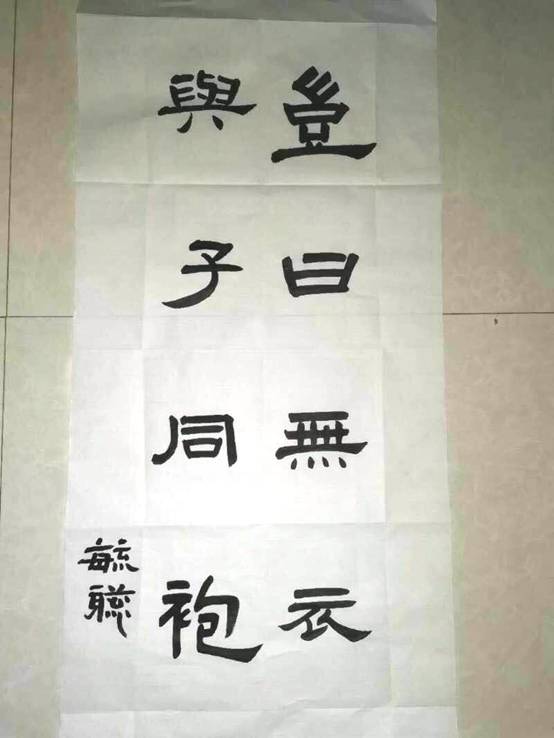 豈曰無衣
與子同袍
毓聰